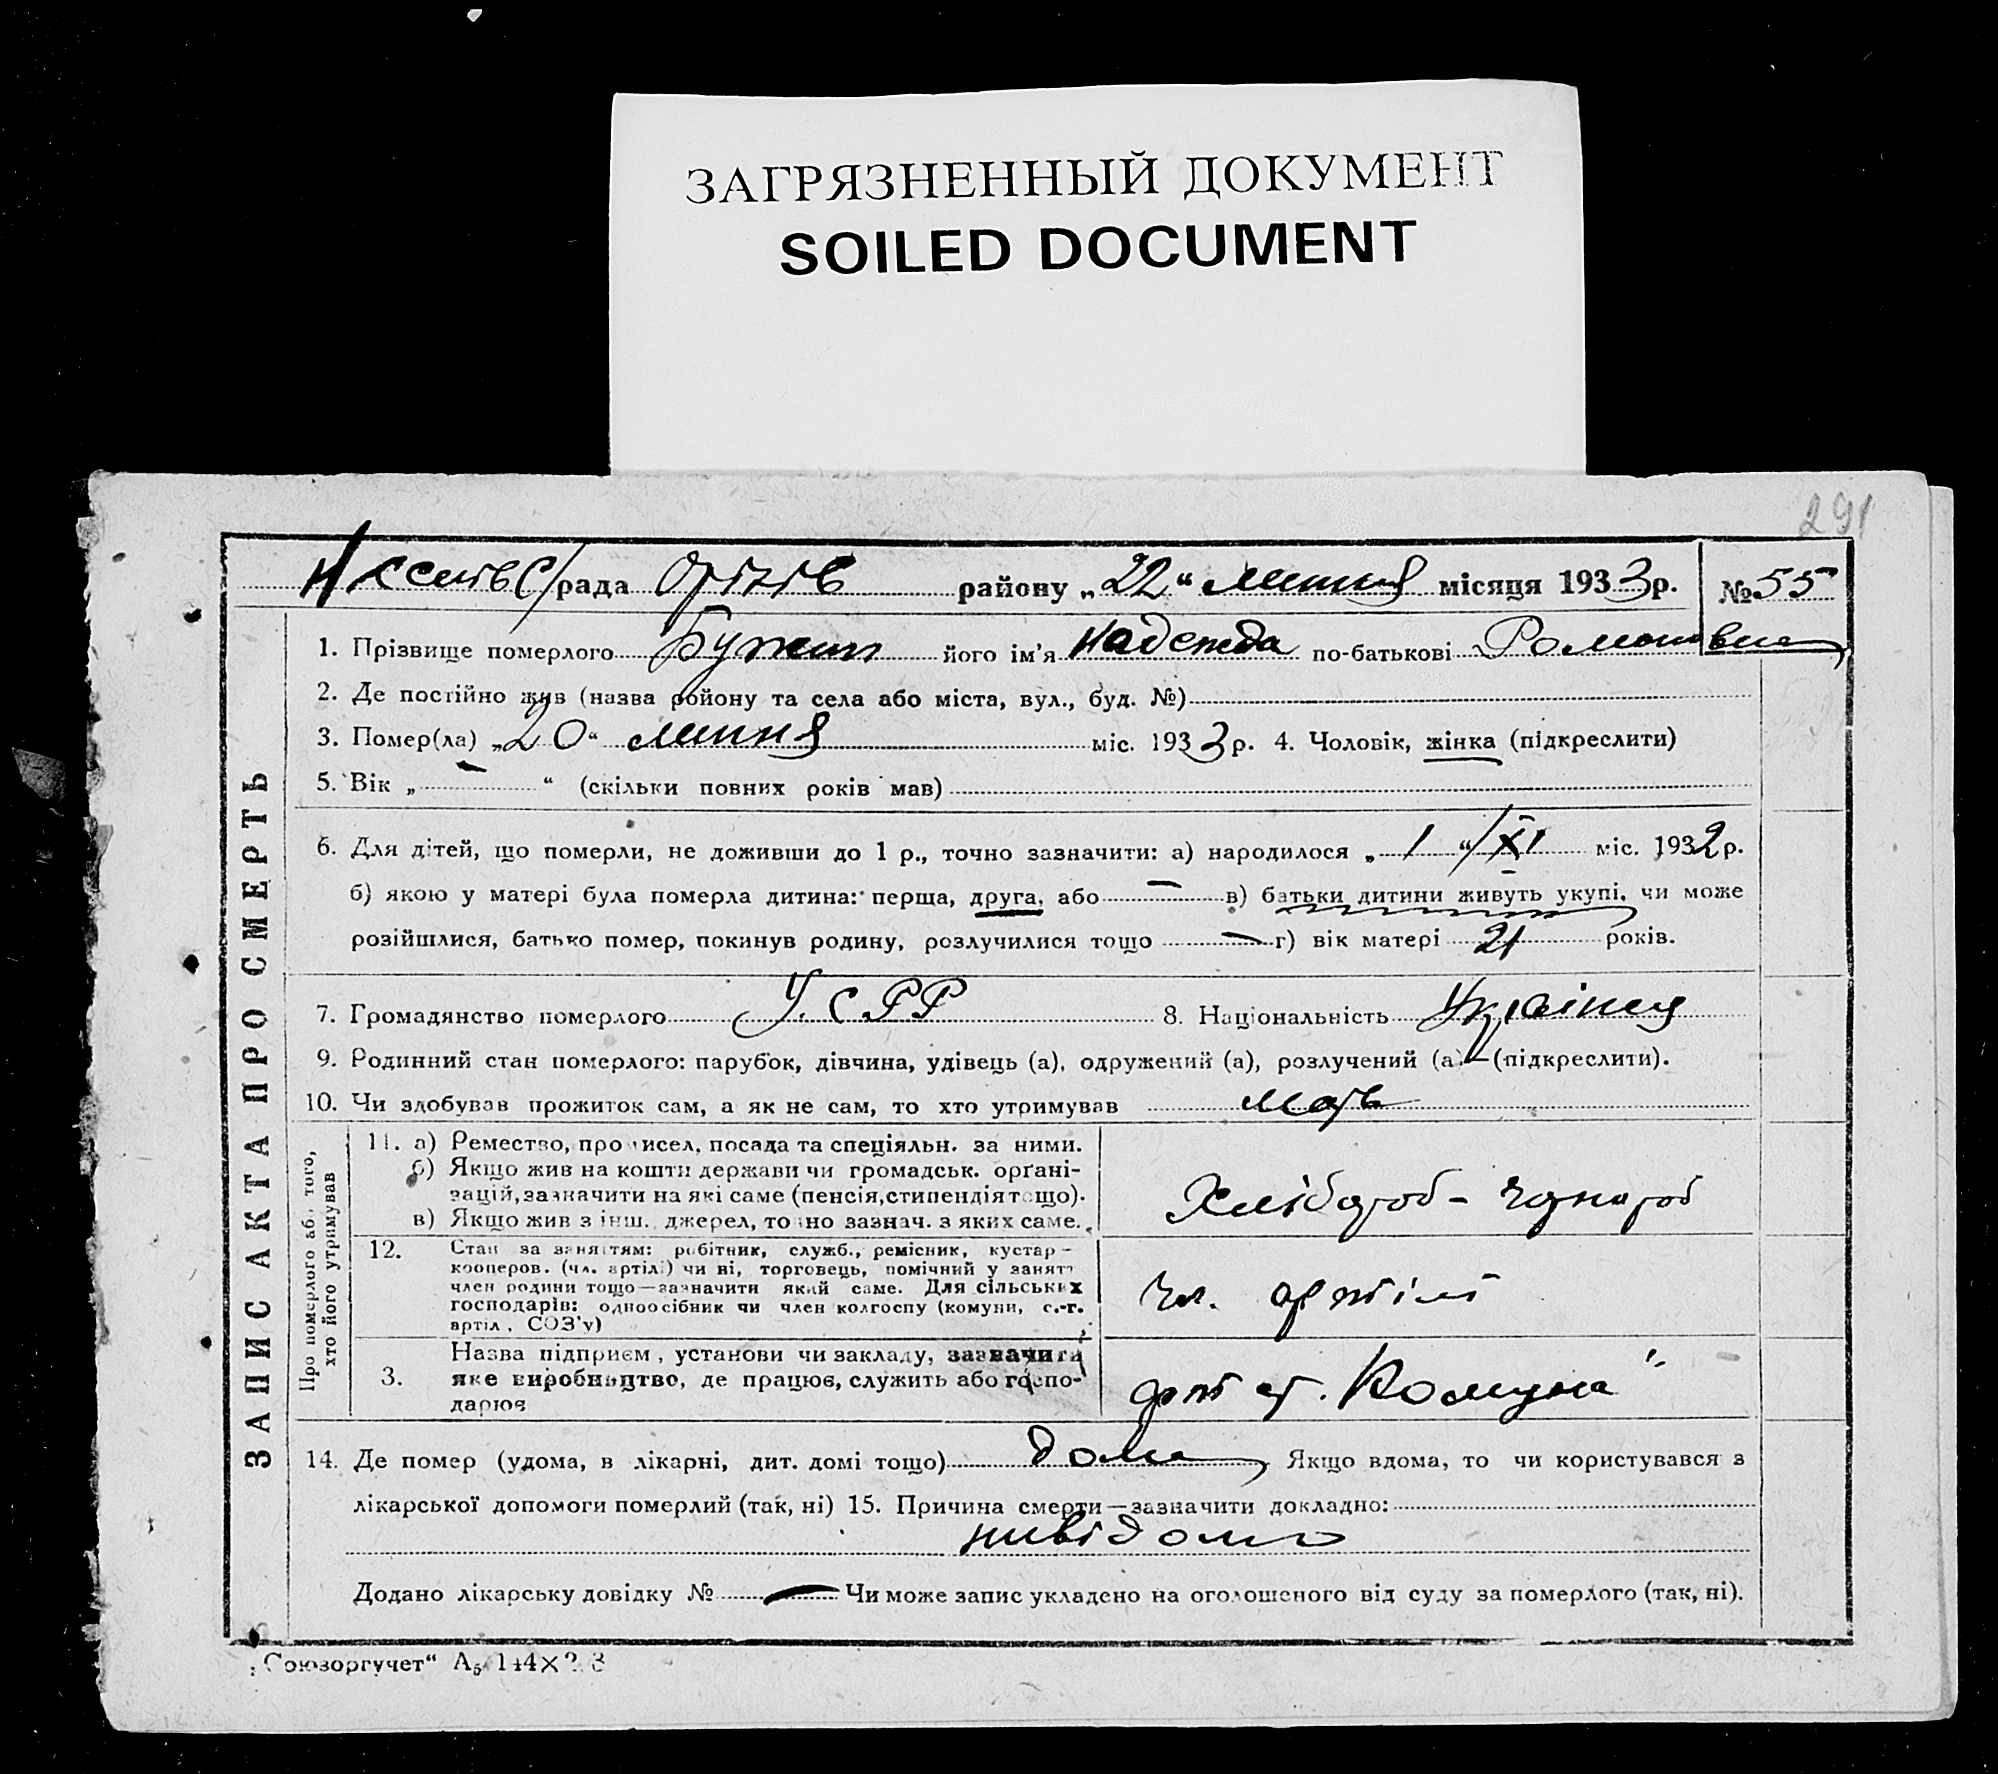 ЗАГРЯЗНЕННЫЙ ДОКУМЕНТ
SOILED DOCUMENT
291
рада Оріхів району „22“ липня місяця 1933р. №55
1. Прізвище померлого його ім'я Надежда по-батькові Романовна
2. Де постійно жив (назва ройону та села або міста, вул., буд. №)
3. Помер(ла) „20“ липня міс. 1933р. 4. Чоловік, жінка (підкреслити)
5. Вік „ — “ (скільки повних років мав)
6. Для дітей, що померли, не доживши до 1 р., точно зазначити: а) народилося „1“/XI міс. 1932р.
б) якою у матері була померла дитина: перша, друга, або — в) батьки дитини живуть укупі, чи може
розійшлися, батько помер, покинув родину, розлучилися тощо — г) вік матері 21 років.
7. Громадянство померлого У.СРР 8. Національність Українця
9. Родинний стан померлого: парубок, дівчина, удівець (а), одружений (а), розлучений (а) — (підкреслити).
10. Чи здобував прожиток сам, а як не сам, то хто утримував мать
ЗАПИС АКТА ПРО СМЕРТЬ
Про померлого або того,
хто його утримував
11. а) Ремество, промисел, посада та спеціяльн. за ними.
б) Якщо жив на кошти держави чи громадськ. орґані-
зацій, зазначити на які саме (пенсія, стипендія тощо).
в) Якщо жив з інш. джерел, точно зазнач. з яких саме.
Хлібороб - чорнороб
12. Стан за заняттям: робітник, служб., ремісник, кустар-
кооперов. (чл. артілі) чи ні, торговець, помічний у занятт
член родини тощо—зазначити який саме. Для сільських
господарів: одноосібник чи член колгоспу (комуни, с.-г.
артіл., СОЗ'у)
Чл. артілі
3. Назва підприєм, установи чи закладу, зазначити
яке виробництво, де працює, служить або госпо-
дарює
Комуна"
14. Де помер (удома, в лікарні, дит. домі тощо) дома Якщо вдома, то чи користувався з
лікарської допомоги померлий (так, ні) 15. Причина смерти—зазначити докладно:
невідомо
Додано лікарську довідку № — Чи може запис укладено на оголошеного від суду за померлого (так, ні).
„Союзоргучет“ А₅ 144×2 3